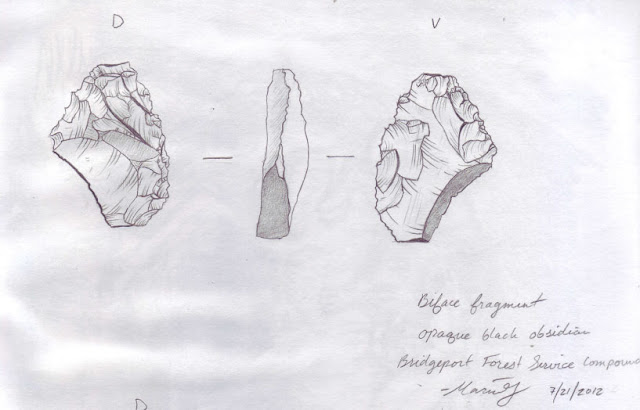 D V
Biface fragment
opaque black obsidian
Bridgeport Forest Service Compound
7/21/2012
D